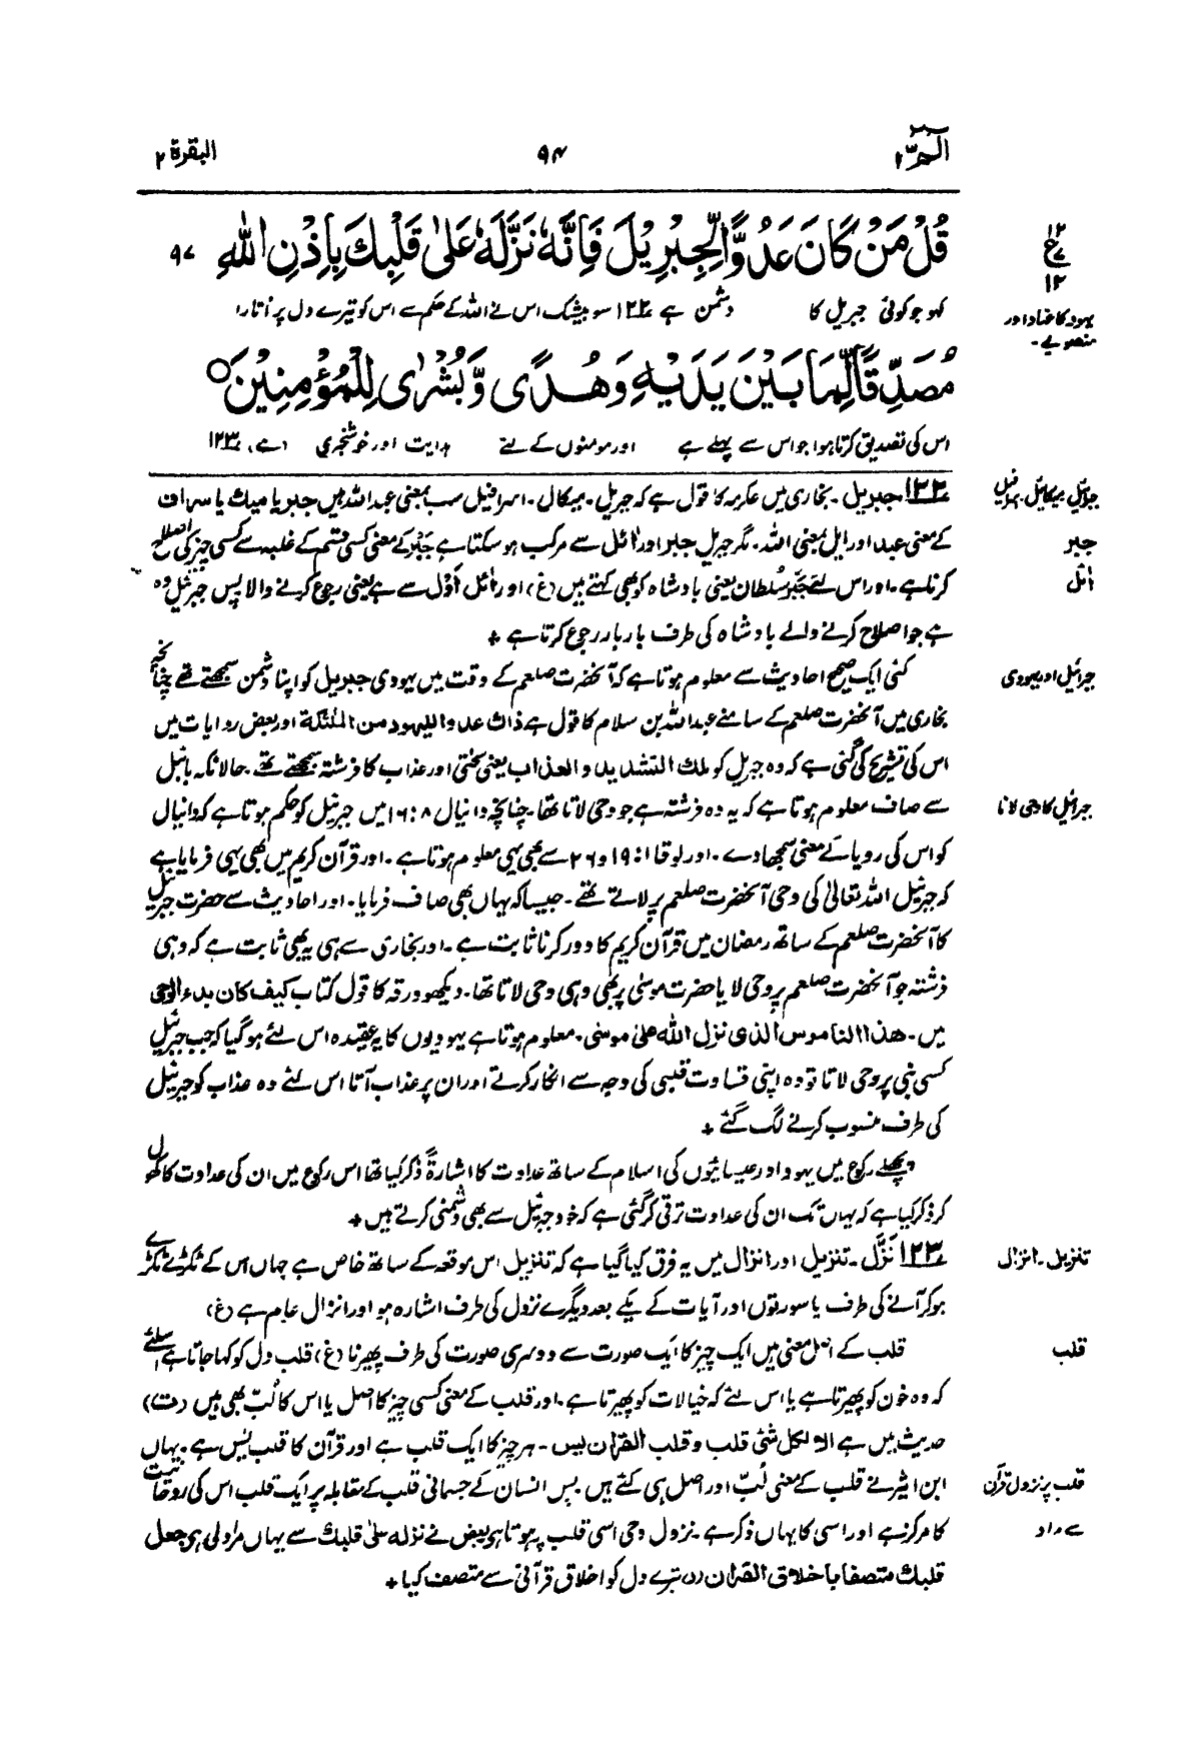 الٓمّٓ ١
٩٤
البقرة ٢
قُلْ مَنْ كَانَ عَدُوًّا لِّجِبْرِيْلَ فَاِنَّهٗ نَزَّلَهٗ عَلٰى قَلْبِكَ بِاِذْنِ اللّٰهِ ٩٧
کہو جو کوئی جبریل کا دشمن ہے ١٢٢ سو بیشک اس نے اللہ کے حکم سے اس کو تیرے دل پر اُتارا
یہود کا عناد اور
منصوبے۔
مُصَدِّقًا لِّمَا بَيْنَ يَدَيْهِ وَهُدًى وَّبُشْرٰى لِلْمُؤْمِنِيْنَ
اس کی تصدیق کرتا ہوا جو اس سے پہلے ہے اور مومنوں کے لئے ہدایت اور خوشخبری ١٢٣
١٢٢ جبریل۔ بخاری میں عکرمہ کا قول ہے کہ جبریل۔ میکال۔ اسرافیل سب بمعنی عبداللہ ہیں جبر یا میک یا سراف
کے معنی عبد اور ایل بمعنی اللہ۔ مگر جبریل جبر اور ائل سے مرکب ہو سکتا ہے جَبْر کے معنی کسی قسم کے غلبہ سے کسی چیز کی اصلاح
جبر
کرنا ہے۔ اور اس لئے جَبْر سُلطان یعنی بادشاہ کو بھی کہتے ہیں (غ) اور ائل اَوْل سے ہے یعنی رجوع کرنے والا پس جبرئیل وہ
ائل
ہے جو اصلاح کرنے والے بادشاہ کی طرف بار بار رجوع کرتا ہے +
کئی ایک صحیح احادیث سے معلوم ہوتا ہے کہ آنحضرت صلعم کے وقت میں یہودی جبریل کو اپنا دشمن سمجھتے تھے چنانچہ
جبرئیل اور یہودی
بخاری میں آنحضرت صلعم کے سامنے عبداللہ بن سلام کا قول ہے ذاك عدو اليهود من الملٰئكة اور بعض روایات میں
اس کی تشریح کی گئی ہے کہ وہ جبریل کو ملك التشديد والعذاب یعنی سختی اور عذاب کا فرشتہ سمجھتے تھے۔ حالانکہ بائبل
سے صاف معلوم ہوتا ہے کہ یہ وہ فرشتہ ہے جو وحی لاتا تھا۔ چنانچہ دانیال ٨:١٦ میں جبرئیل کو حکم ہوتا ہے کہ دانیال
جبرئیل کا وحی لانا
کو اس کی رویا کے معنی سمجھا دے۔ اور لوقا ١:١٩ و ٢٦ سے بھی یہی معلوم ہوتا ہے۔ اور قرآن کریم میں بھی یہی فرمایا ہے
کہ جبرئیل اللہ تعالیٰ کی وحی آنحضرت صلعم پر لاتے تھے۔ جیسا کہ یہاں بھی صاف فرمایا۔ اور احادیث سے حضرت جبریل
کا آنحضرت صلعم کے ساتھ رمضان میں قرآن کریم کا دور کرنا ثابت ہے۔ اور بخاری سے ہی یہ بھی ثابت ہے کہ وہی
فرشتہ جو آنحضرت صلعم پر وحی لایا حضرت موسیٰ پر بھی وہی وحی لاتا تھا۔ دیکھو ورقہ کا قول کتاب كيف كان بدء الوحى
میں۔ هذا الناموس الذى نزل الله على موسى۔ معلوم ہوتا ہے یہودیوں کا یہ عقیدہ اس لئے ہو گیا کہ جب جبرئیل
کسی نبی پر وحی لاتا تو وہ اپنی قساوت قلبی کی وجہ سے انکار کرتے اور ان پر عذاب آتا اس لئے وہ عذاب کو جبرئیل
کی طرف منسوب کرنے لگ گئے +
پچھلے رکوع میں یہود اور عیسائیوں کی اسلام کے ساتھ عداوت کا اشارۃً ذکر کیا تھا اس رکوع میں ان کی عداوت کا کھول
کر ذکر کیا ہے کہ یہاں تک ان کی عداوت ترقی کر گئی ہے کہ خود جبرئیل سے بھی دشمنی کرتے ہیں +
١٢٣ نَزَّل۔ تنزیل اور انزال میں یہ فرق کیا گیا ہے کہ تنزیل اس موقعہ کے ساتھ خاص ہے جہاں اس کے ٹکڑے ٹکڑے
تنزیل۔ انزال
ہو کر آنے کی طرف یا سورتوں اور آیات کے یکے بعد دیگرے نزول کی طرف اشارہ ہو اور انزال عام ہے (غ)
قلب کے اصل معنی ہیں ایک چیز کا ایک صورت سے دوسری صورت کی طرف پھیرنا (غ) قلب دل کو کہا جاتا ہے اسلئے
قلب
کہ وہ خون کو پھیرتا ہے یا اس لئے کہ خیالات کو پھیرتا ہے۔ اور قلب کے معنی کسی چیز کا اصل یا اس کا لُبّ بھی ہیں (ت)
حدیث میں ہے ان لكل شئ قلب وقلب القراٰن يس۔ ہر چیز کا ایک قلب ہے اور قرآن کا قلب یٰس ہے۔ یہاں
ابن اثیر نے قلب کے معنی لُبّ اور اصل ہی کئے ہیں پس انسان کے جسمانی قلب کے مقابلہ پر ایک قلب اس کی روحانیت
قلب پر نزول قرآن
کا مرکز ہے اور اسی کا یہاں ذکر ہے۔ نزول وحی اسی قلب پر ہوتا ہے بعض نے نزله على قلبك سے یہاں مراد لی ہے جعل
سے مراد
قلبك متصفا باخلاق القراٰن (ر) تیرے دل کو اخلاق قرآنی سے متصف کیا +